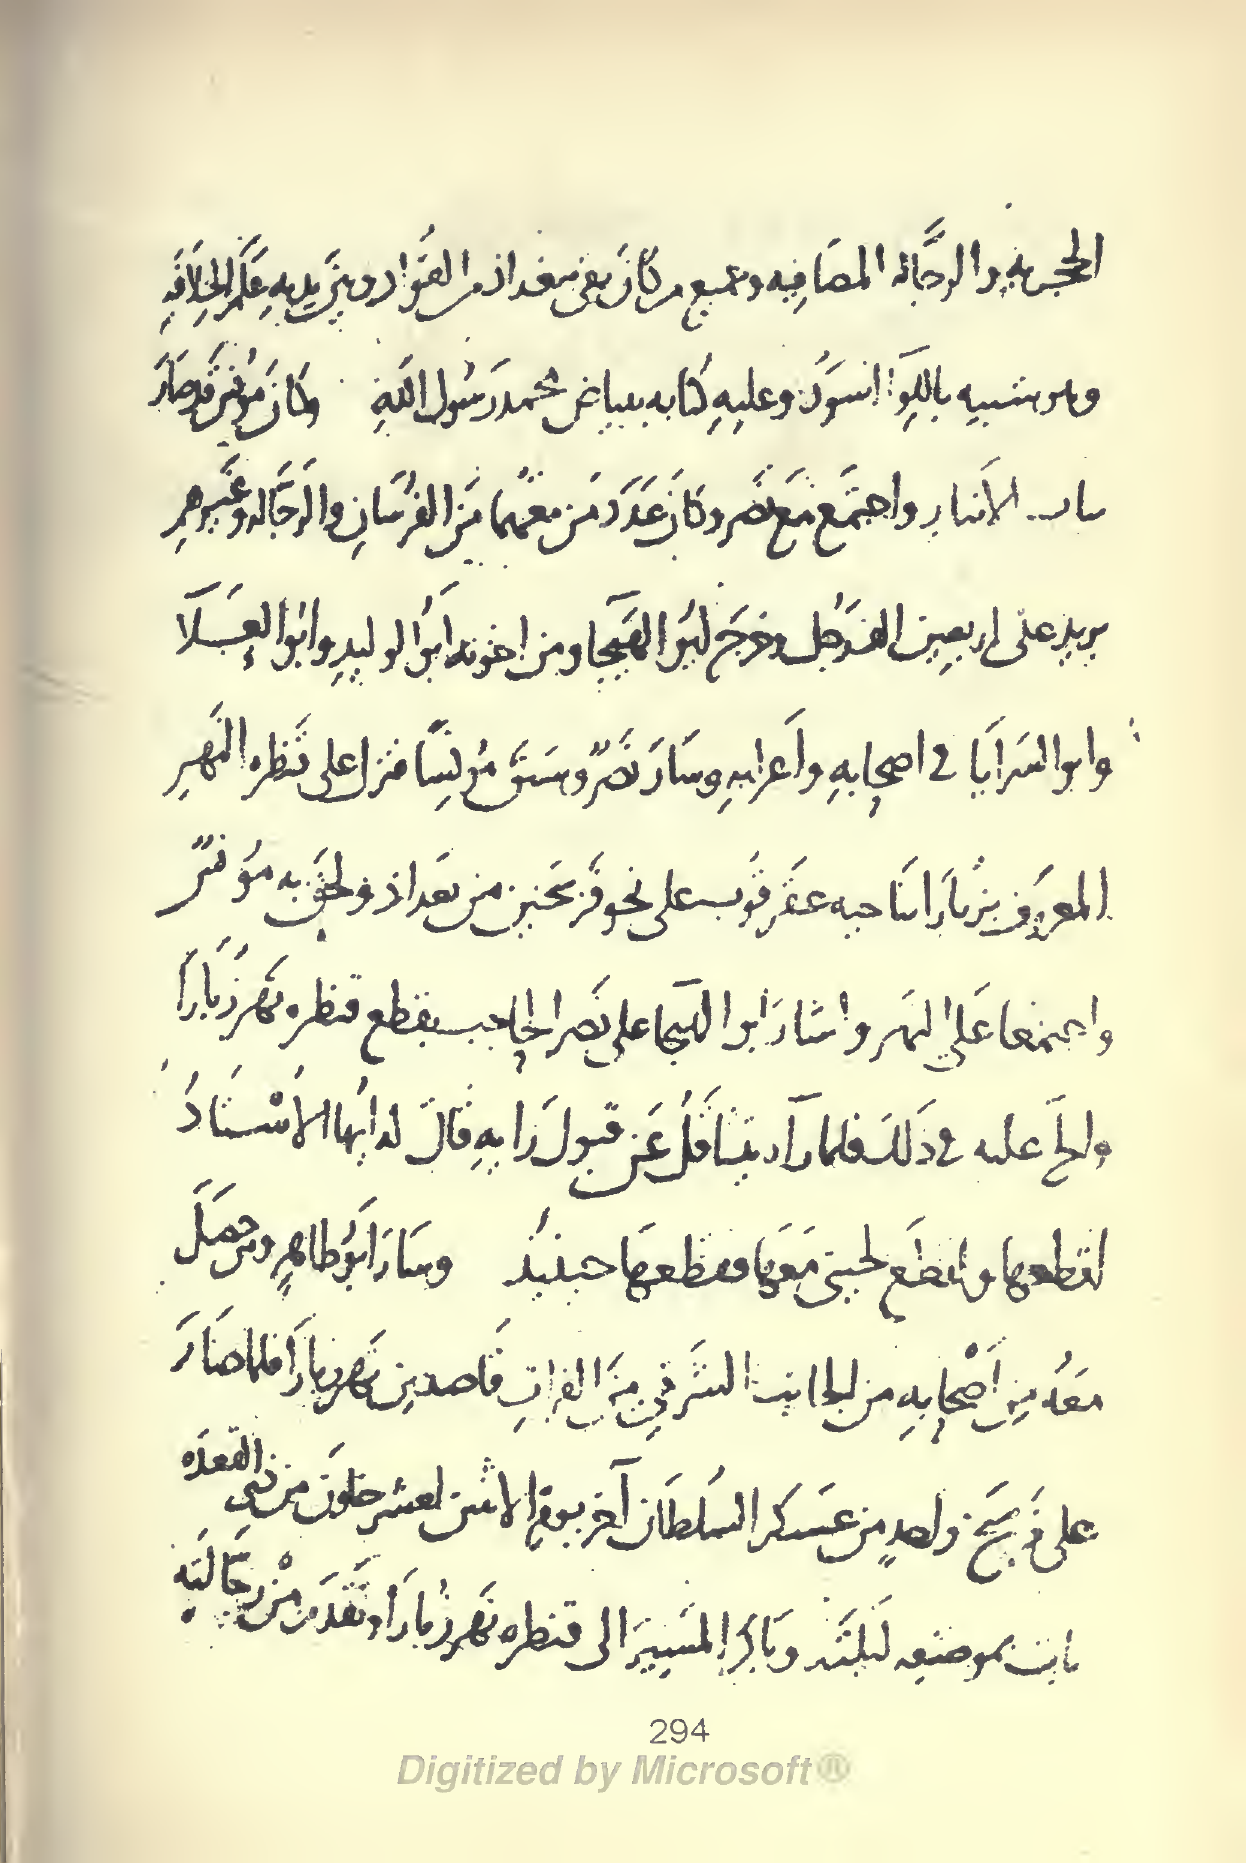 الحجريه والرجاله المصافيه وجميع من كان بقي ببغداذ من القواد وبين يديه علم الخلافه
وهو شبيه باللوآ اسود وعليه كتابه ببياض محمد رسول الله وكان مونس قد صار
بباب الانبار واجتمع مع نصر وكان عدد من معهما من الفرسان والرجاله وغيرهم
يزيد على اربعين الف رجل وخرج ابو الهيجا ومن اخوته ابو الوليد وابو العلا
وابو السرايا في اصحابه واعرابه وسار نصر وسبق مونسا فنزل على قنطره النهر
المعروف بزبارا بناحيه عقرقوب على نحو فرسخين من بغداذ ولحق به مؤنس
واجتمعا على النهر واشار ابو الهيجا على نصر الحاجب بقطع قنطره نهر زبارا
والح عليه في ذلك فلما رآه يتثاقل عن قبول رايه قال له ايها الاستاذ
اقطعها واقطع لحيتي معها فقطعها حينيذ وسار ابو طاهر ومن حصل
معه من اصحابه من الجانب الشرقي من الفرات قاصدين نهر زبارا فلما صار
على فرسخ واحد من عسكر السلطان آخر يوم الاثنين لعشر خلون من ذي القعده
بات بموضعه ليلته وباكر المسير الى قنطره نهر زبارا وتقدم من رجالته
294
Digitized by Microsoft®